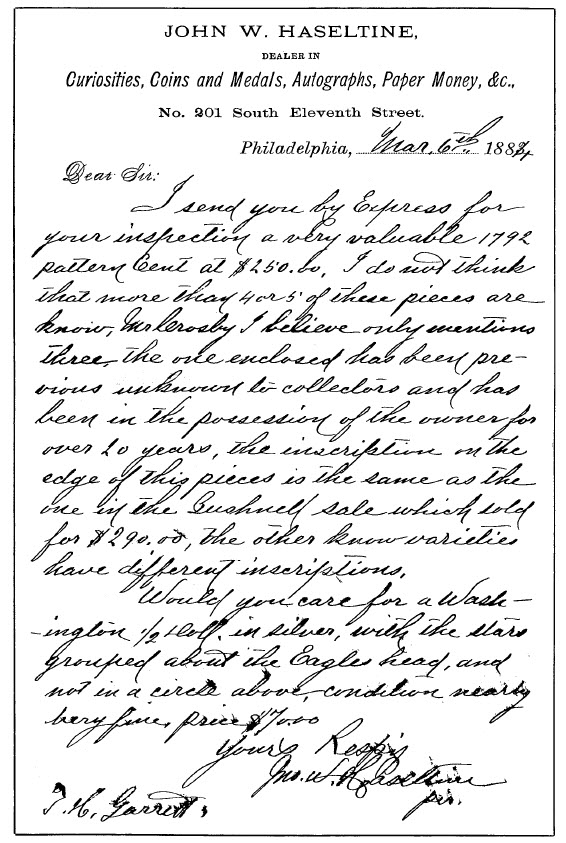 JOHN W. HASELTINE,
DEALER IN
Curiosities, Coins and Medals, Autographs, Paper Money, &c.,
No. 201 South Eleventh Street.
Philadelphia, Mar. 6th 1884
Dear Sir:
I send you by Express for
your inspection a very valuable 1792
pattern Cent at $250.00, I do not think
that more than 4 or 5 of these pieces are
know, Mr Crosby I believe only mentions
three, the one enclosed has been pre-
vious unknown to collectors and has
been in the possession of the owner for
over 20 years, the inscription on the
edge of this pieces is the same as the
one in the Bushnell sale which sold
for $290.00, the other know varieties
have different inscriptions.
Would you care for a Wash-
-ington 1/2 Doll. in silver, with the stars
grouped about the Eagles head, and
not in a circle above, condition nearly
very fine, price $70.00
Yours Resp'y
Jno. W. Haseltine
T. H. Garrett,